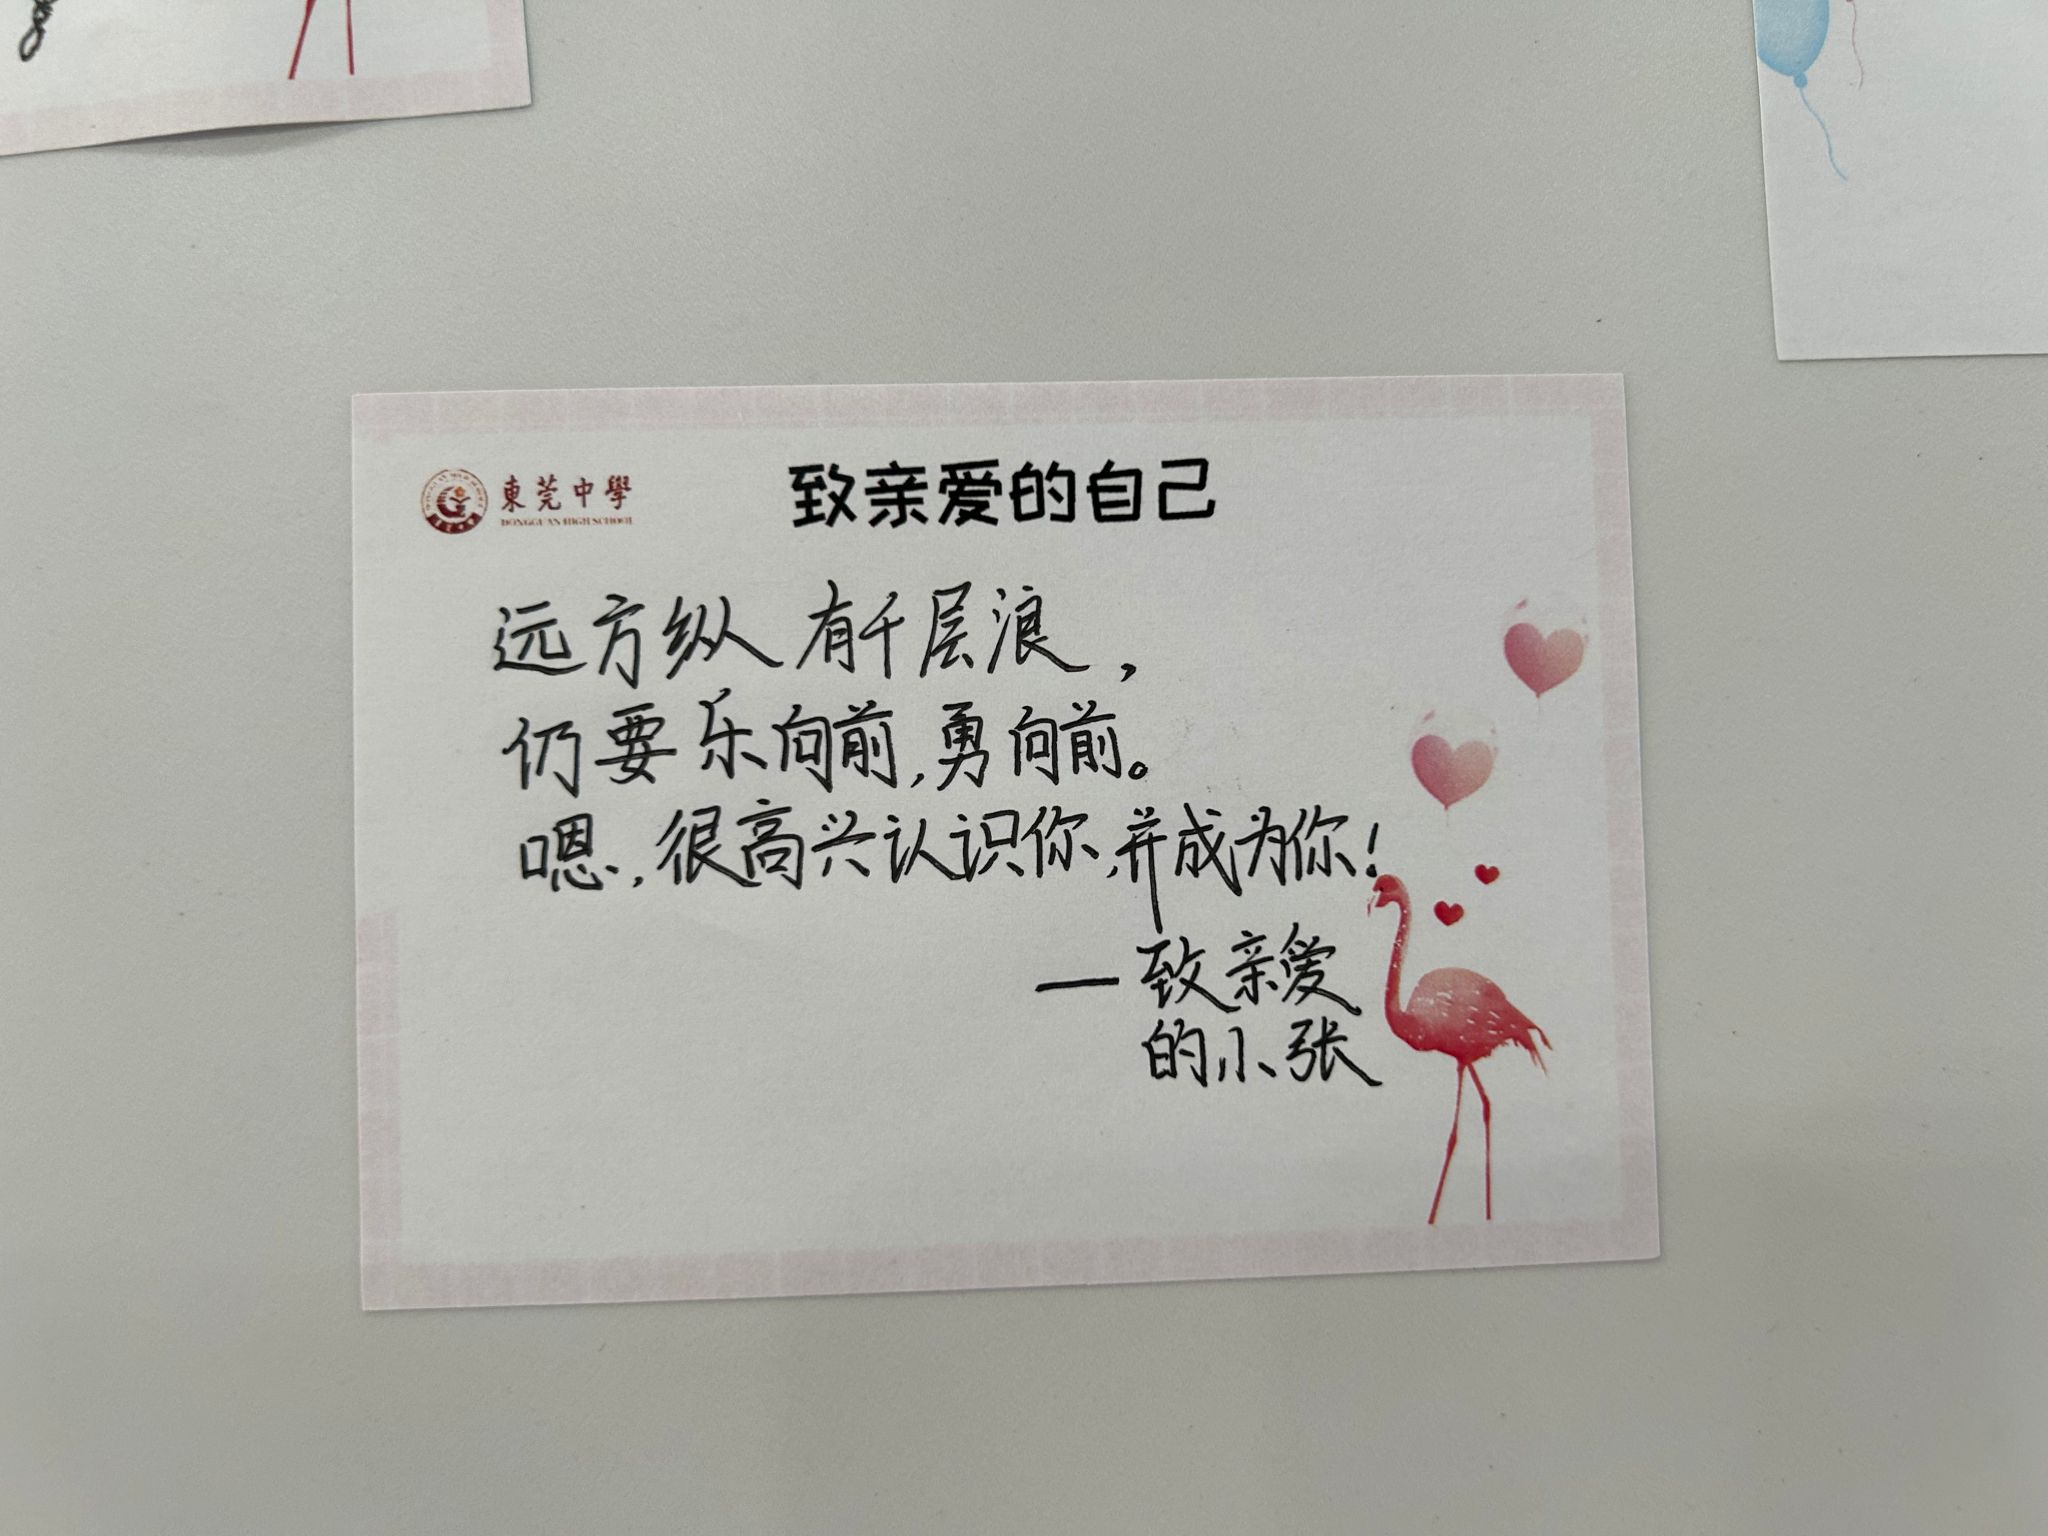 東莞中學
DONGGUAN HIGH SCHOOL
致亲爱的自己
远方纵有千层浪，
仍要乐向前，勇向前。
嗯，很高兴认识你，并成为你！
—致亲爱
的小张